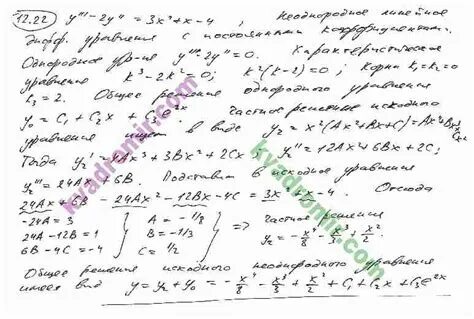 12.22 y''' - 2y'' = 3x² + x - 4 ; Неоднородное линейное
дифф. уравнение с постоянными коэффициентами.
Однородное ур-ие y''' - 2y'' = 0. Характеристическое
уравнение k³ - 2k² = 0; k²(k-2) = 0; Корни k₁ = k₂ = 0
k₃ = 2. Общее решение однородного уравнения
y₀ = C₁ + C₂x + C₃e^2x Частное решение исходного
уравнения ищем в виде y₂ = x²(Ax² + Bx + C) = Ax⁴ + Bx³ + Cx²
Тогда y₂' = 4Ax³ + 3Bx² + 2Cx y₂'' = 12Ax² + 6Bx + 2C;
y₂''' = 24Ax + 6B. Подставим в исходное уравнение
24Ax + 6B - 24Ax² - 12Bx - 4C = 3x² + x - 4. Отсюда
-24A = 3 A = -1/8
24A - 12B = 1 B = -1/3 ⇒ Частное решение
6B - 4C = -4 C = 1/2 y₂ = -x⁴/8 - x³/3 + x²/2
Общее решение исходного неоднородного уравнения
имеет вид y = y₂ + y₀ = -x⁴/8 - x³/3 + x²/2 + C₁ + C₂x + C₃e^2x
kvadromir.com
kvadromir.com